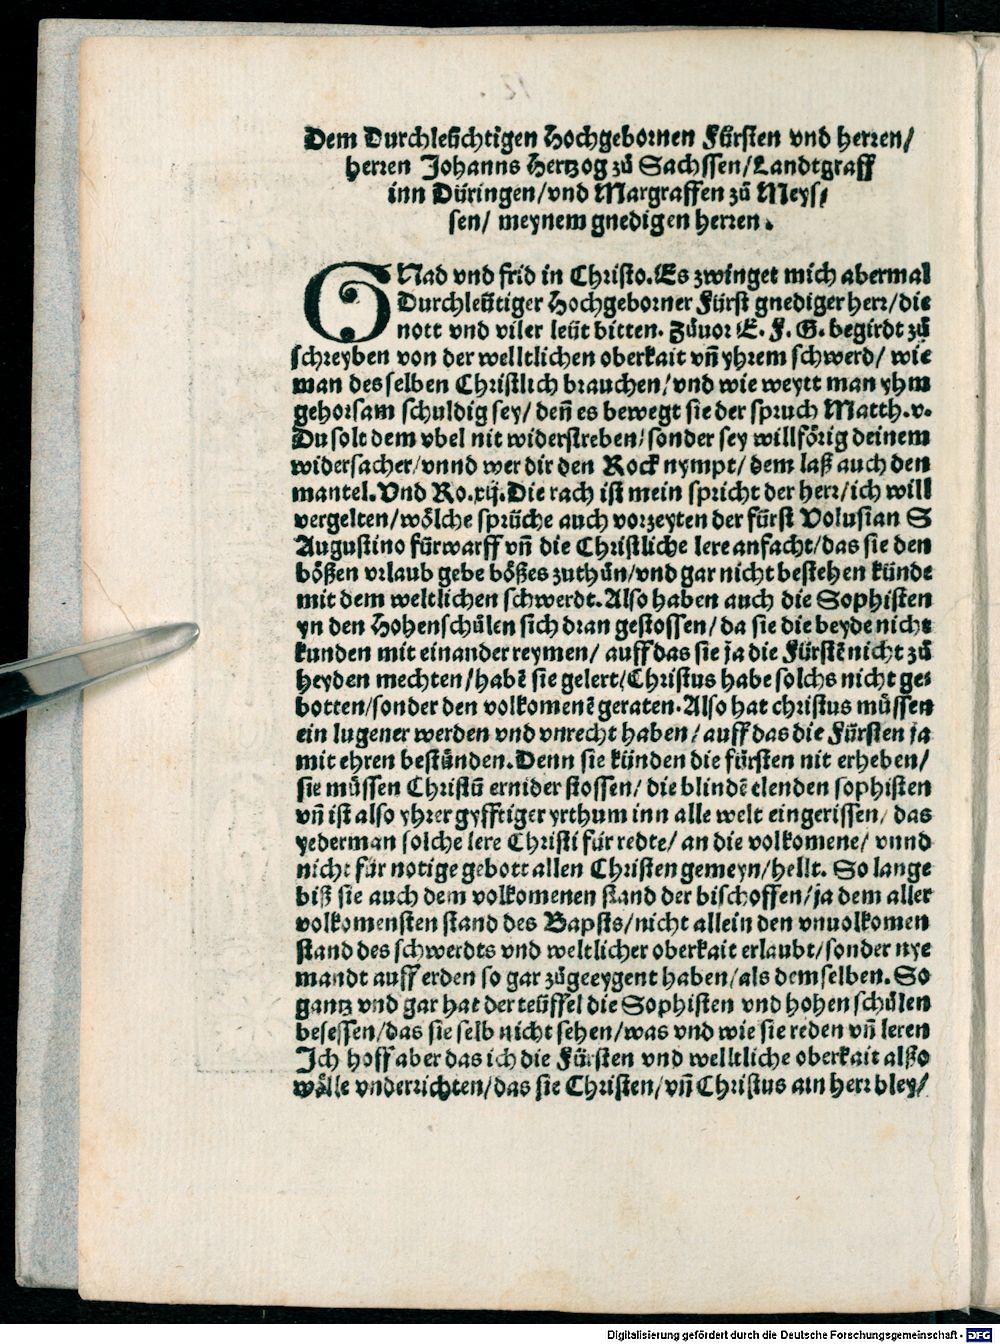 Dem Durchleüchtigen Hochgebornen Fürsten vnd herren/
herren Johanns Hertzog zů Sachssen/Landtgraff
inn Düringen/vnd Margraffen zů Meys/
sen/ meynem gnedigen herren.
GNad vnd frid in Christo. Es zwinget mich abermal
Durchleütiger Hochgeborner Fürst gnediger herr/die
nott vnd viler leüt bitten. Zůuor E. F. G. begirdt zů
schreyben von der welltlichen oberkait vñ yhrem schwerd/ wie
man desselben Christlich brauchen/vnd wie weytt man yhm
gehorsam schuldig sey/ deñ es bewegt sie der spruch Matth.v.
Du solt dem vbel nit widerstreben/sonder sey willförig deinem
widersacher/vnnd wer dir den Rock nympt/ dem laß auch den
mantel. Vnd Ro.xij. Die rach ist mein spricht der herr/ich will
vergelten/wölche sprüche auch vorzeyten der fürst Volusian S
Augustino fürwarff vñ die Christliche lere anfacht/das sie den
bößen vrlaub gebe bößes zuthůn/vnd gar nicht bestehen künde
mit dem weltlichen schwerdt. Also haben auch die Sophisten
yn den Hohenschůlen sich dran gestossen/ da sie die beyde nicht
kunden mit einander reymen/ auff das sie ja die Fürstē nicht zů
heyden mechten/habē sie gelert/Christus habe solchs nicht ge-
botten/sonder den volkomenē geraten. Also hat christus müssen
ein lugener werden vnd vnrecht haben/ auff das die Fürsten ja
mit ehren bestünden. Denn sie künden die fürsten nit erheben/
sie müssen Christū ernider stossen/ die blindē elenden sophisten
vñ ist also yhrer gyfftiger yrthum inn alle welt eingerissen/ das
yederman solche lere Christi für redte/ an die volkomene/ vnnd
nicht für notige gebott allen Christen gemeyn/hellt. So lange
biß sie auch dem volkomenen stand der bischoffen/ja dem aller
volkomensten stand des Bapsts/nicht allein den vnuolkomen
stand des schwerdts vnd weltlicher oberkait erlaubt/sonder nye
mandt auff erden so gar zůgeeygent haben/als demselben. So
gantz vnd gar hat der teüffel die Sophisten vnd hohen schůlen
besessen/das sie selb nicht sehen/was vnd wie sie reden vñ leren
Ich hoff aber das ich die Fürsten vnd welltliche oberkait alßo
wälle vnderrichten/das sie Christen/vñ Christus ain herr bley/
Digitalisierung gefördert durch die Deutsche Forschungsgemeinschaft - DFG